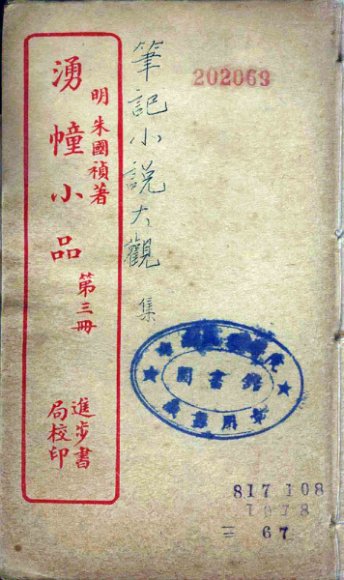 明 朱國禎著
湧幢小品
第三冊
進步書
局校印
筆記小說大觀
集
202069
圖書館
817 108
1078
三 67